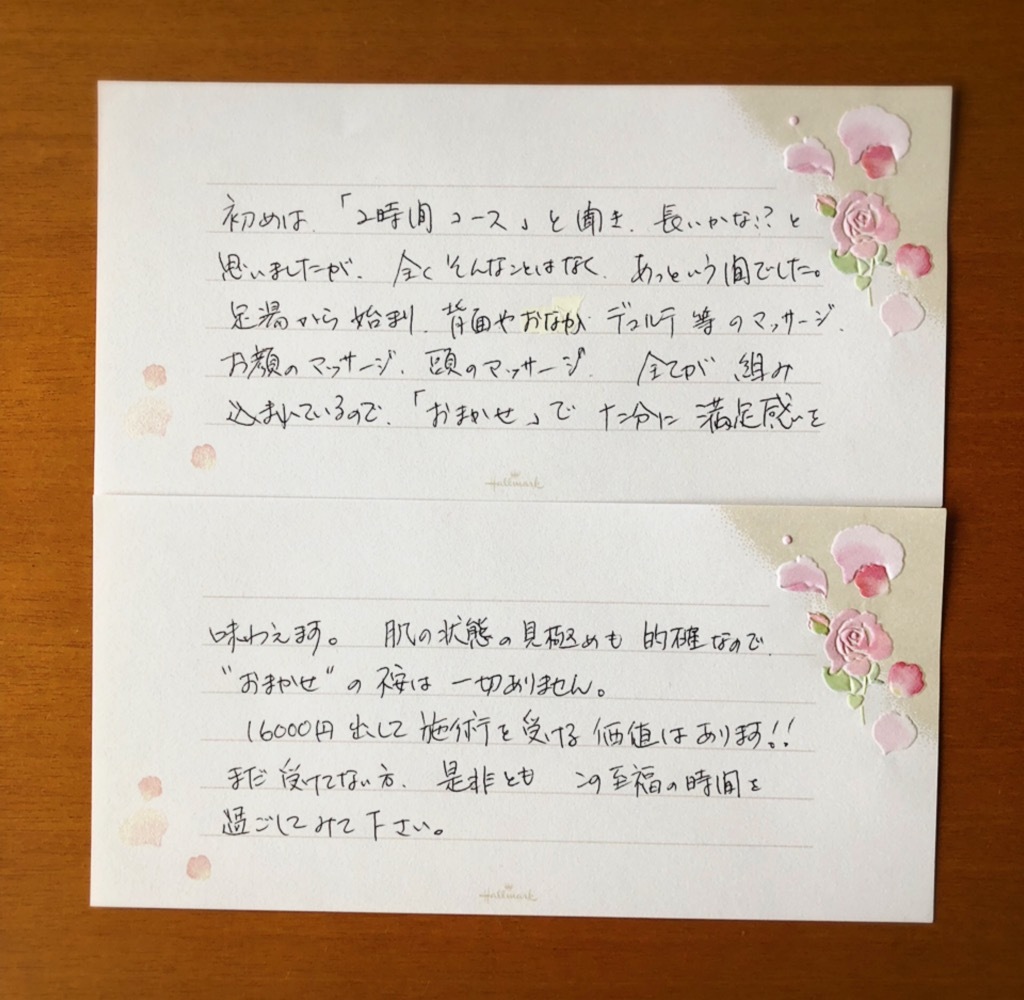 初めは、「2時間コース」と聞き、長いかな!?と
思いましたが、全くそんなことはなく、あっという間でした。
足湯から始まり、背面やおなか、デコルテ等のマッサージ、
お顔のマッサージ、頭のマッサージ、全てが組み
込まれているので、「おまかせ」で十二分に満足感を
Hallmark
味わえます。肌の状態の見極めも的確なので、
"おまかせ"の不安は一切ありません。
16000円出して施術を受ける価値はあります!!
まだ受けてない方、是非とも この至福の時間を
過ごしてみて下さい。
Hallmark